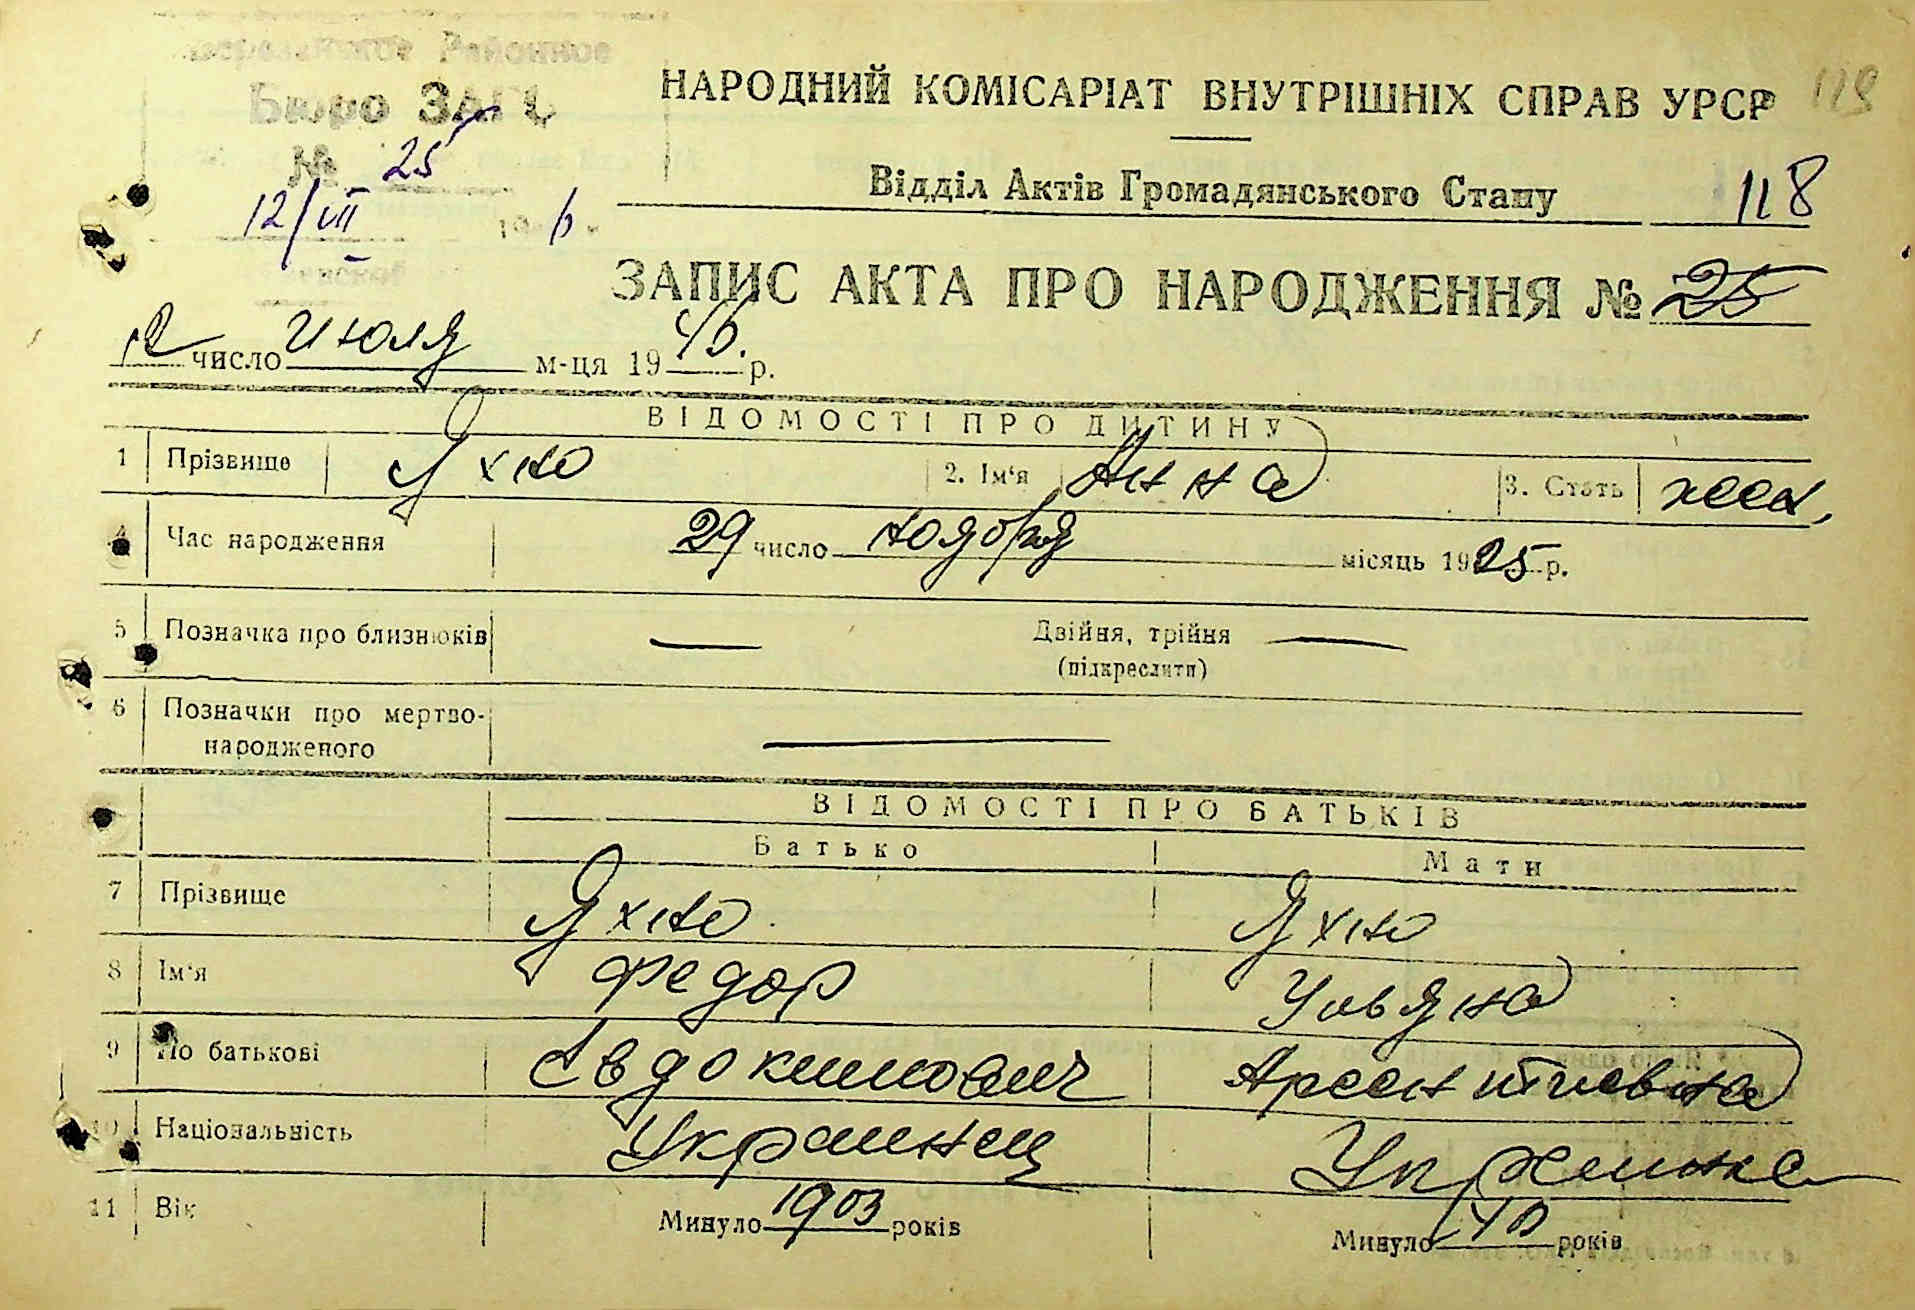 Районное
Бюро ЗАГС
№ 25
12/VII 6
НАРОДНИЙ КОМІСАРІАТ ВНУТРІШНІХ СПРАВ УРСР
Відділ Актів Громадянського Стану 118
ЗАПИС АКТА ПРО НАРОДЖЕННЯ № 25
12 число июля м-ця 1946. р.
ВІДОМОСТІ ПРО ДИТИНУ
1 Прізвище Яхно 2. Ім'я Анна 3. Стать жен.
4 Час народження 29 число ноября місяць 1925 р.
5 Позначка про близнюків — Двійня, трійня —
(підкреслити)
6 Позначки про мертво-
народженого —
ВІДОМОСТІ ПРО БАТЬКІВ
Батько Мати
7 Прізвище Яхно Яхно
8 Ім'я Федор Ульяна
9 По батькові Евдокимович Арсентиевна
10 Національність Украинец Украинка
11 Вік Минуло 1903 років Минуло років